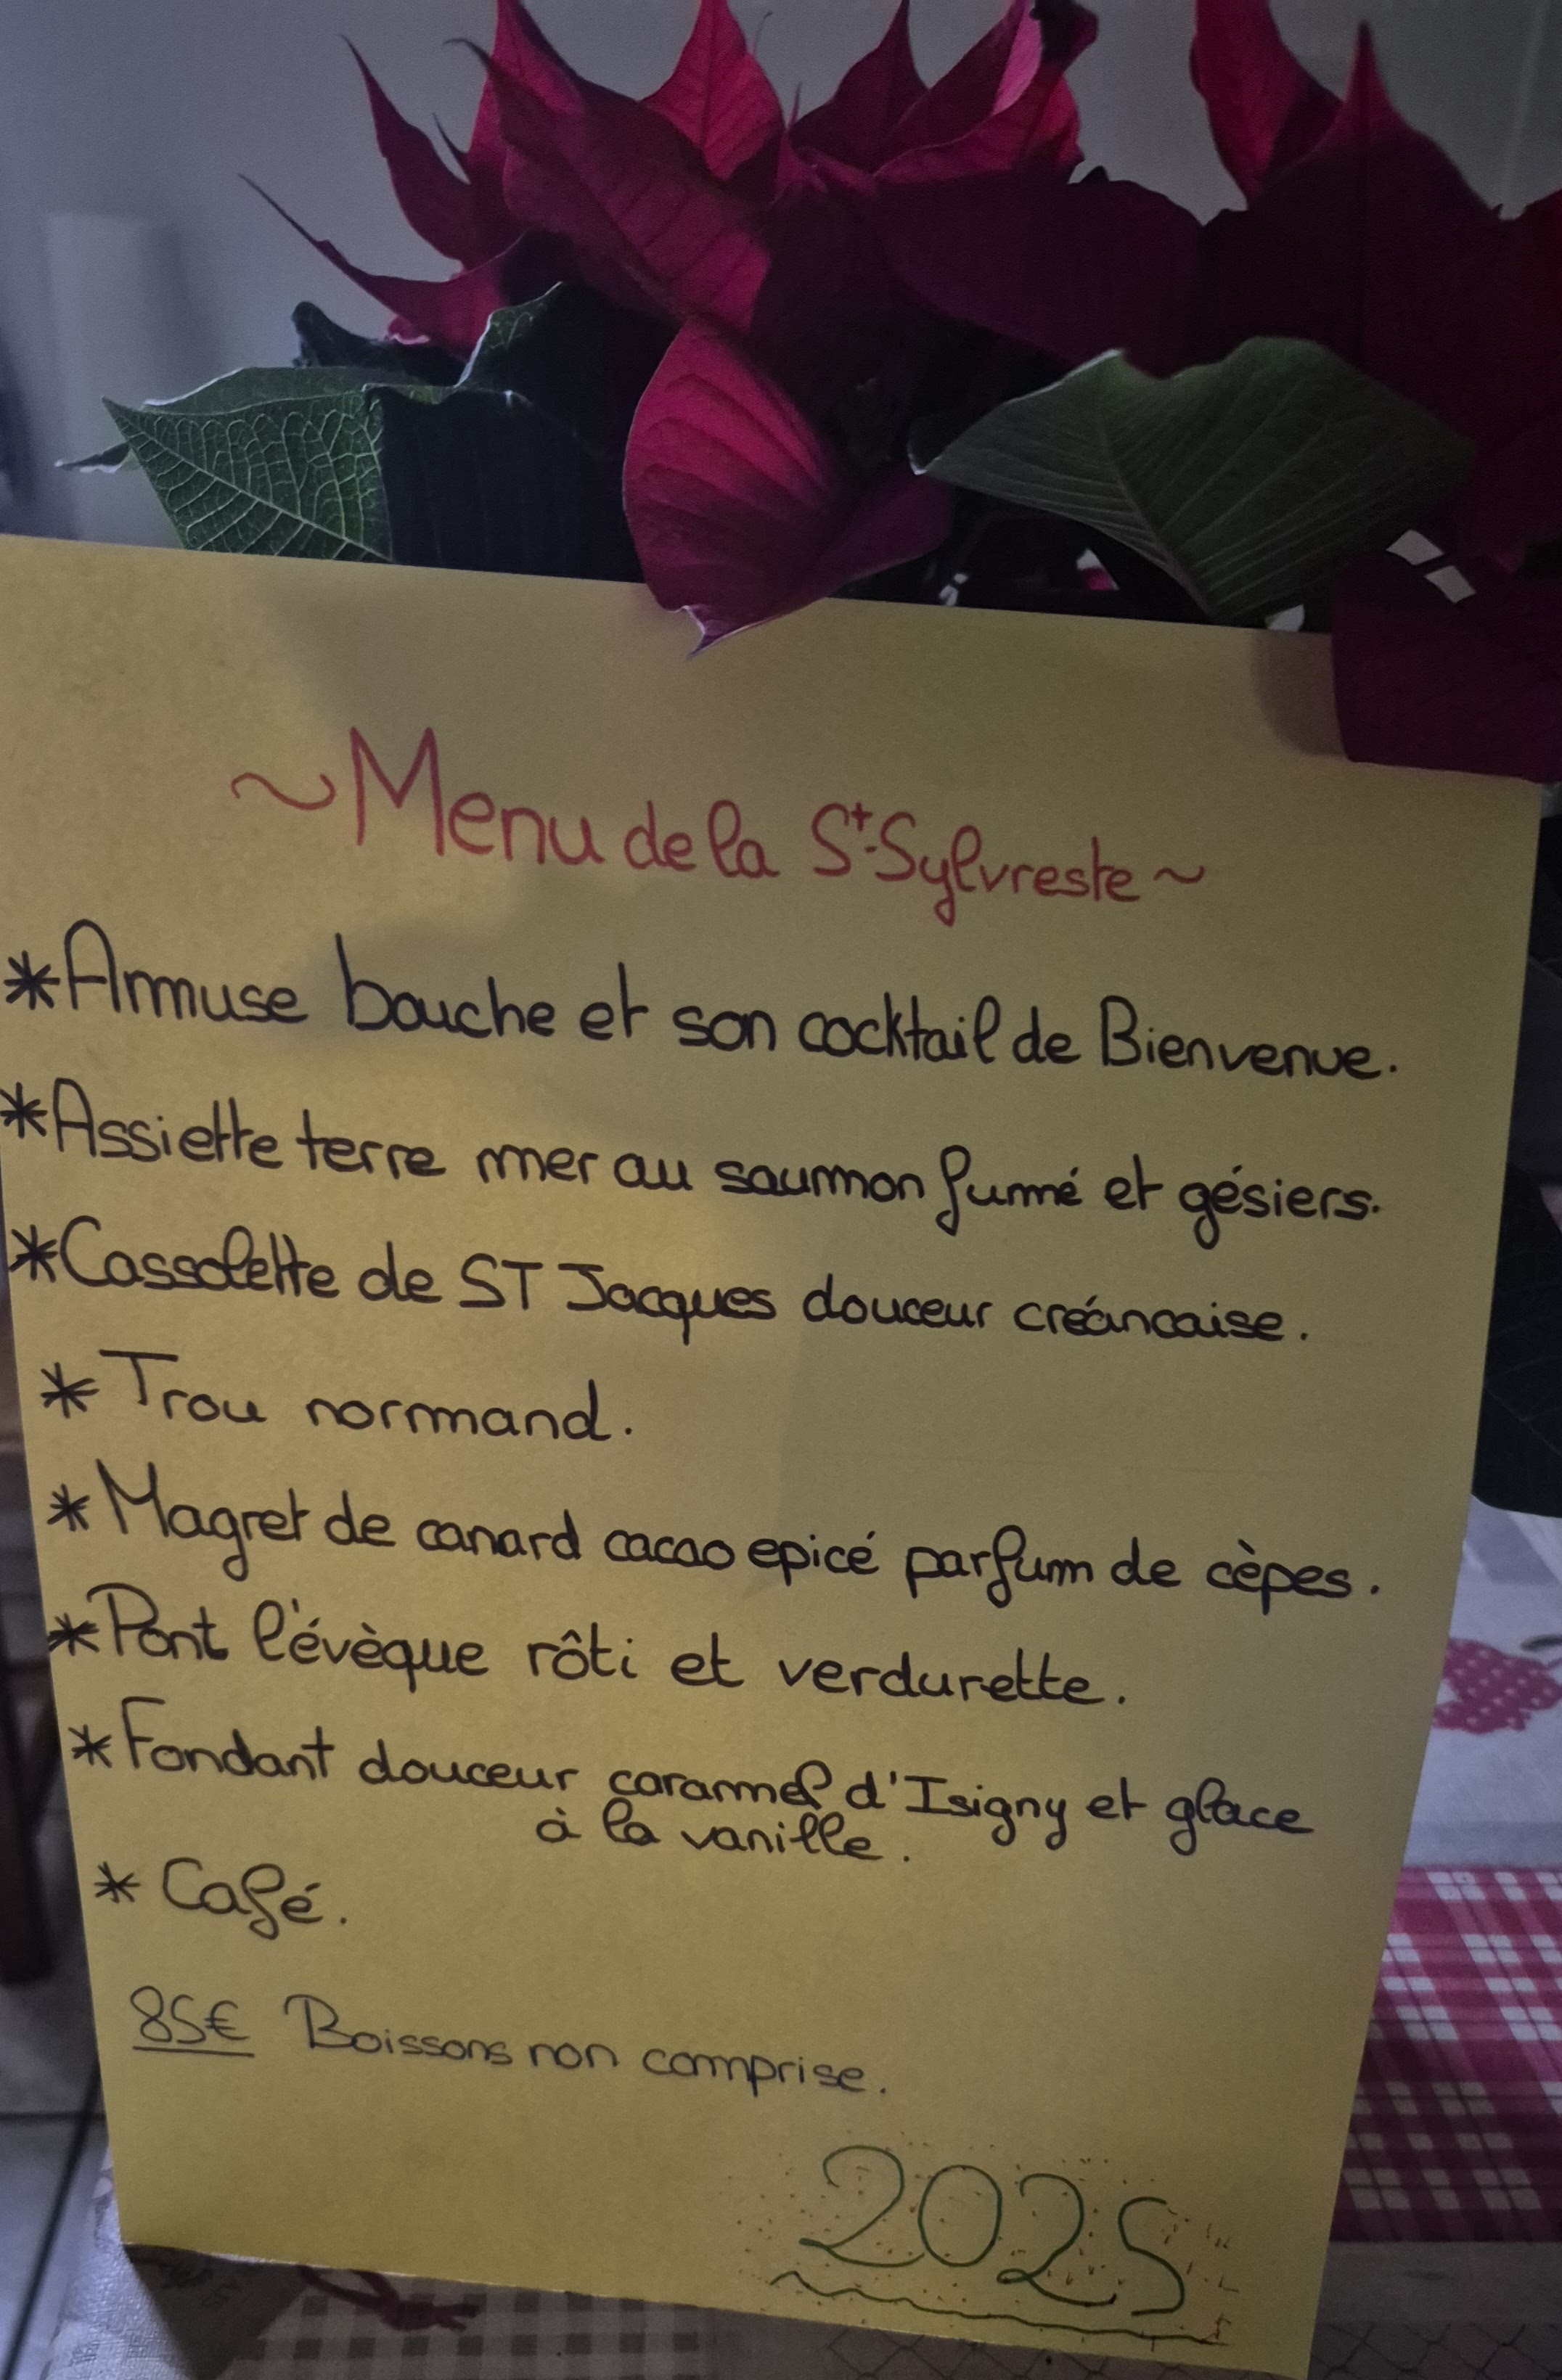 ~Menu de la St-Sylvreste~
*Amuse bouche et son cocktail de Bienvenue.
*Assiette terre mer au saumon fumé et gésiers.
*Cassolette de ST Jacques douceur créancaise.
* Trou normand.
* Magret de canard cacao epicé parfum de cèpes.
*Pont l'évèque rôti et verdurette.
*Fondant douceur caramel d'Isigny et glace
à la vanille.
* Café.
85€ Boissons non comprise.
2025